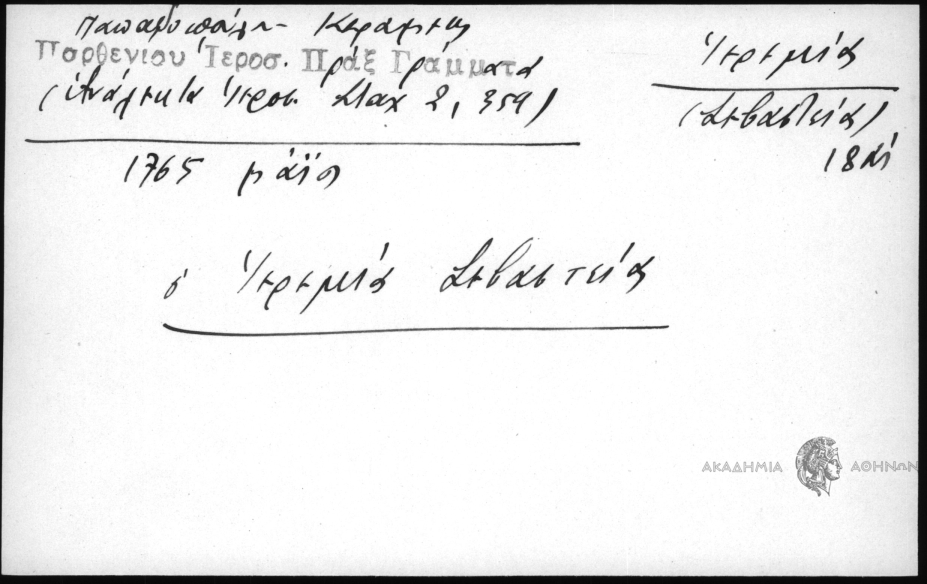 Παπαδοπούλου - Κεραμέως
Παρθενίου Ἱεροσ. Πράξ Γράμματα
(Ἀνάλεκτα Ἱεροσ. Σταχ 2, 359)
Ἱερεμίας
(Σεβαστείας)
18 αἰ
1765 μάϊος
ὁ Ἱερεμίας Σεβαστείας
ΑΚΑΔΗΜΙΑ ΑΘΗΝΩΝ